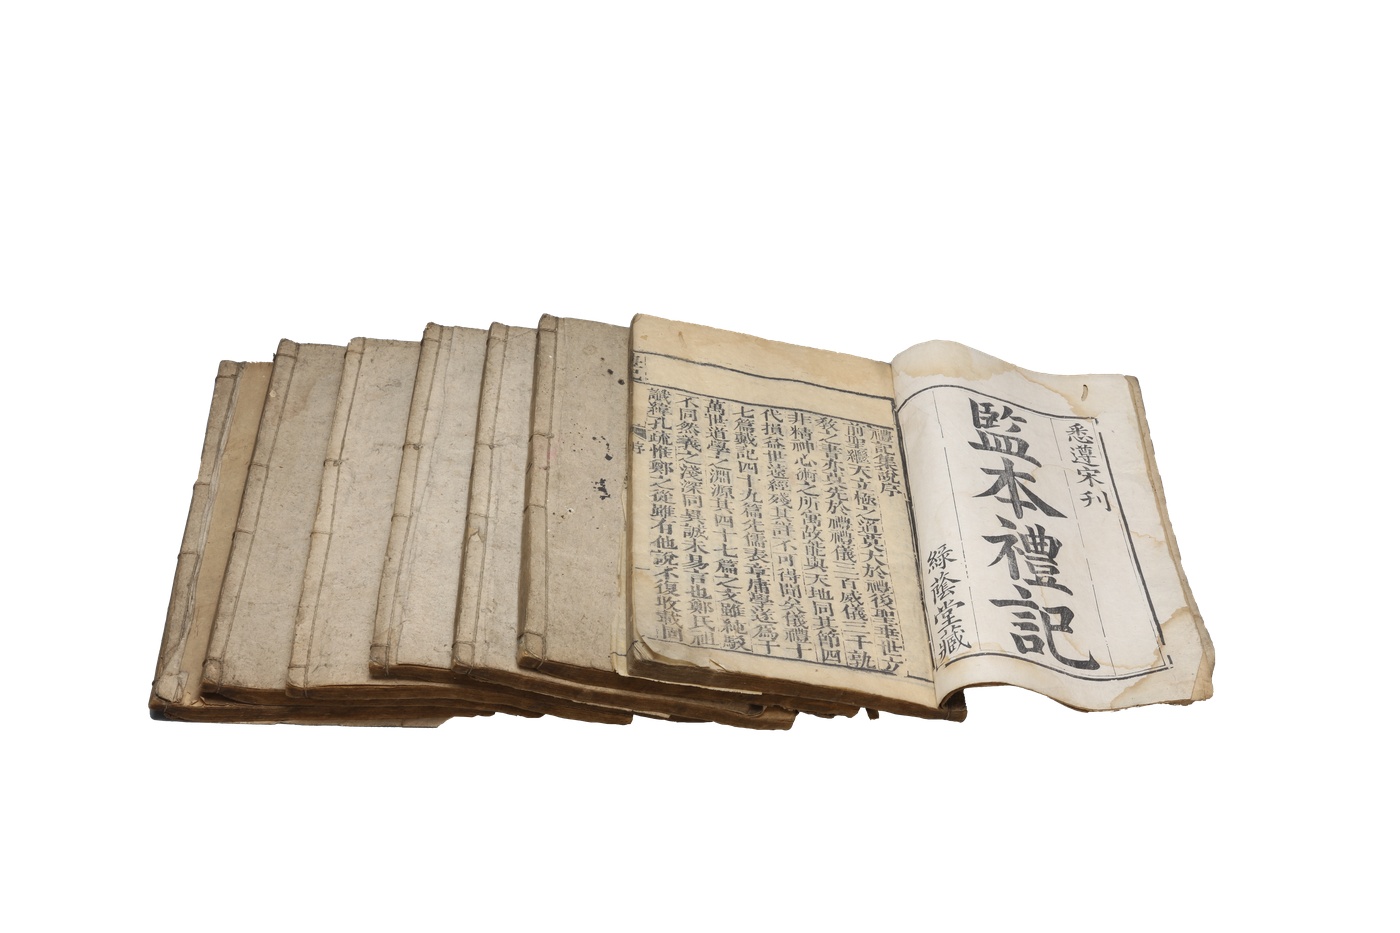 悉遵宋刊
監本禮記
綠蔭堂藏
禮記集說序
前聖繼天立極之道莫大於禮後聖垂世立
教之書亦莫先於禮禮儀三百威儀三千孰
非精神心術之所寓故能與天地同其節四
代損益世遠經殘其詳不可得聞矣儀禮十
七篇戴記四十九篇先儒表章庸學遂為千
萬世道學之淵源其四十七篇之文雖純駁
不同然義之淺深同異誠未易言也鄭氏祖
讖緯孔疏惟鄭之從雖有他說不復收載固
序